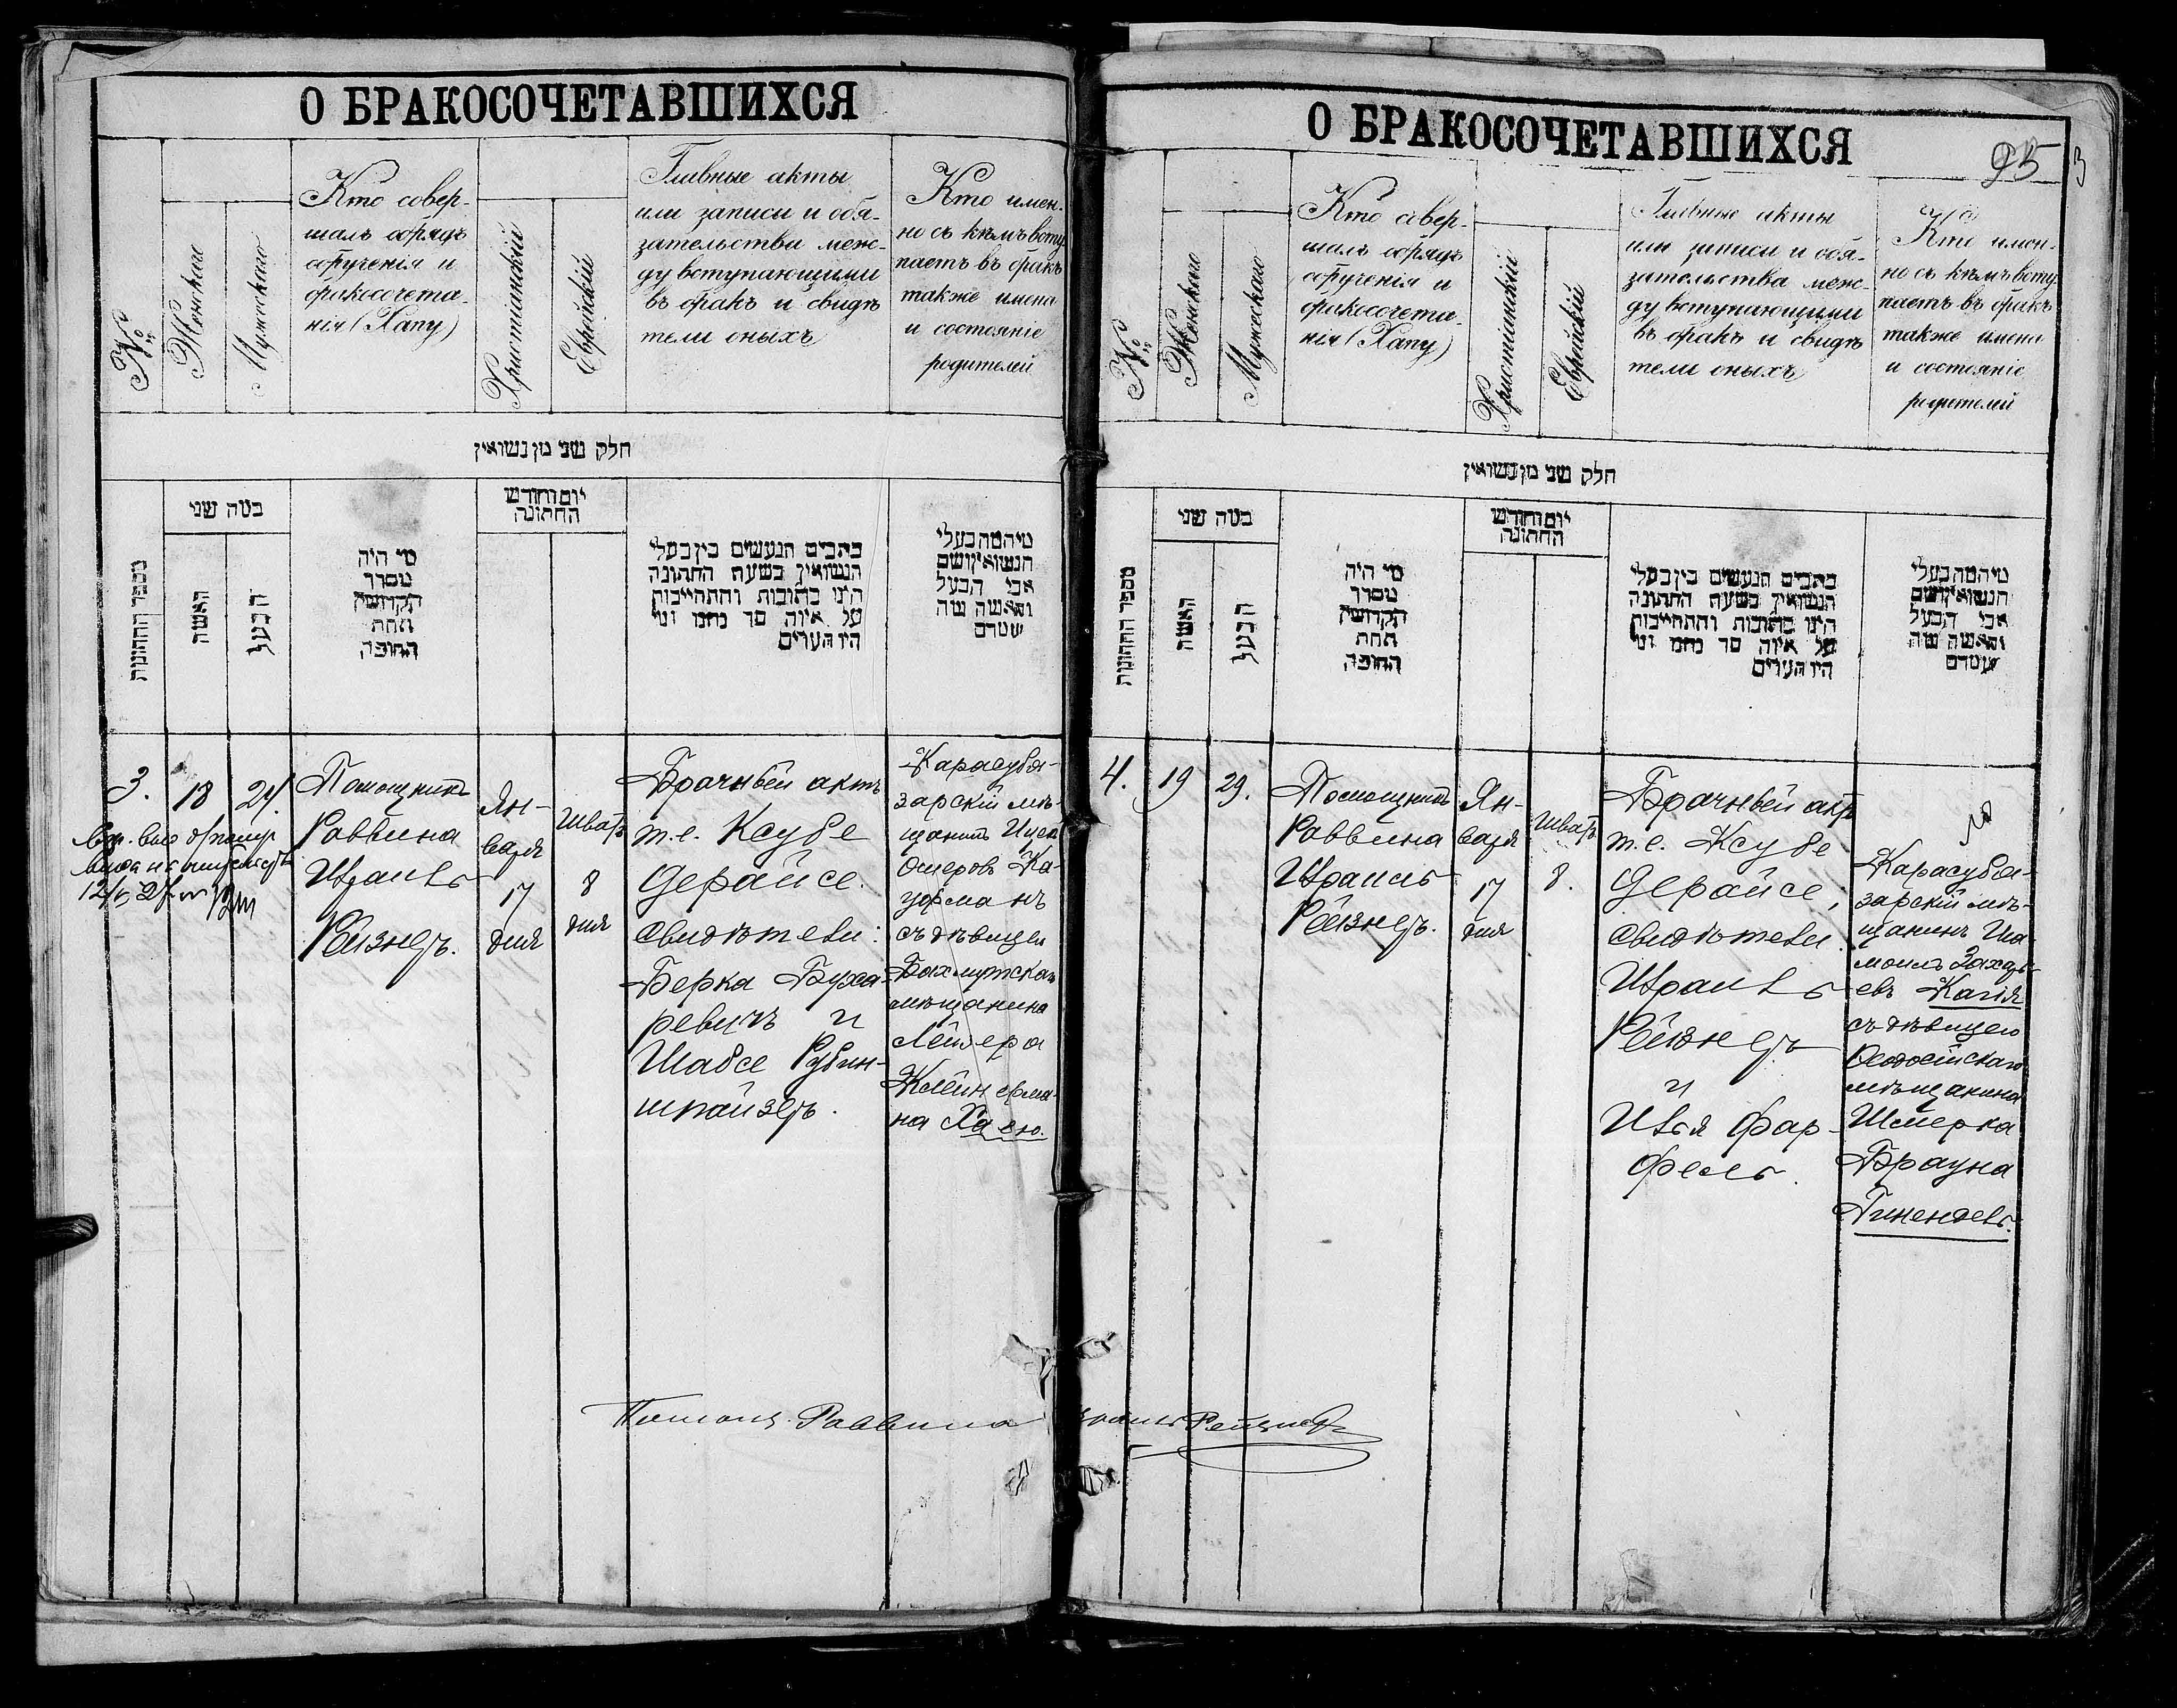 О БРАКОСОЧЕТАВШИХСЯ
№
Женскаго
Мужескаго
Кто совер-
шалъ обрядъ
обрученія и
бракосочета-
нія (Хапу)
Христіанскій
Еврейскій
Главные акты
или записи и обя-
зательства меж-
ду вступающими
въ бракъ и свидѣ
тели оныхъ
Кто имен-
но съ кѣмъ всту-
паетъ въ бракъ
также имена
и состояніе
родителей
חלק שני מן נשואין
מספר החתונות
כמה שני
האשה
הבעל
מי היה
מסדר
הקדושין
תחת
החופה
יום וחודש
החתונה
כתבים הנעשים בין בעלי
הנשואין בשעת החתונה
היינו כתובות והתחייבות
על איזה סך נחמו ומי
היו העדים
מי המה בעלי
הנשואין ושם
אבי הבעל
והאשה מה
שמם
3.
18
24.
12/
Помощникъ
Раввина
Израиль
Рейзнеръ.
Ян-
варя
17
дня
Шватъ
8
дня
Брачный актъ
т.е. Ксубе
Дерайсе.
Свидѣтели:
Берка Буха-
ревичъ и
Шабсе Рубин-
штайзеръ.
Карасуба-
зарскій мѣ-
щанинъ
Ошеровъ Ка-
цорманъ
съ дѣвицею
Бахмутскаго
мѣщанина
Лейзера
Клейнерма-
на Хасю.
Помощ. Раввина Израиль Рейзнеръ
О БРАКОСОЧЕТАВШИХСЯ
95
3
№
Женскаго
Мужескаго
Кто совер-
шалъ обрядъ
обрученія и
бракосочета-
нія (Хапу)
Христіанскій
Еврейскій
Главные акты
или записи и обя-
зательства меж-
ду вступающими
въ бракъ и свидѣ
тели оныхъ
Кто имен-
но съ кѣмъ всту-
паетъ въ бракъ
также имена
и состояніе
родителей
חלק שני מן נשואין
מספר החתונות
כמה שני
האשה
הבעל
מי היה
מסדר
הקדושין
תחת
החופה
יום וחודש
החתונה
כתבים הנעשים בין בעלי
הנשואין בשעת החתונה
היינו כתובות והתחייבות
על איזה סך נחמו ומי
היו העדים
מי המה בעלי
הנשואין ושם
אבי הבעל
והאשה מה
שמם
4.
19
29.
Помощникъ
Раввина
Израиль
Рейзнеръ.
Ян-
варя
17
дня
Шватъ
8.
Брачный актъ
т.е. Ксубе
Дерайсе;
Свидѣтели
Израиль
Рейзнеръ
и
Илья Фар-
фель.
Карасуба-
зарскій мѣ-
щанинъ Ша-
моилъ Захарь-
евъ Кагія
съ дѣвицею
Ѳеодосійскаго
мѣщанина
Шмерка
Брауна
Гинендель.